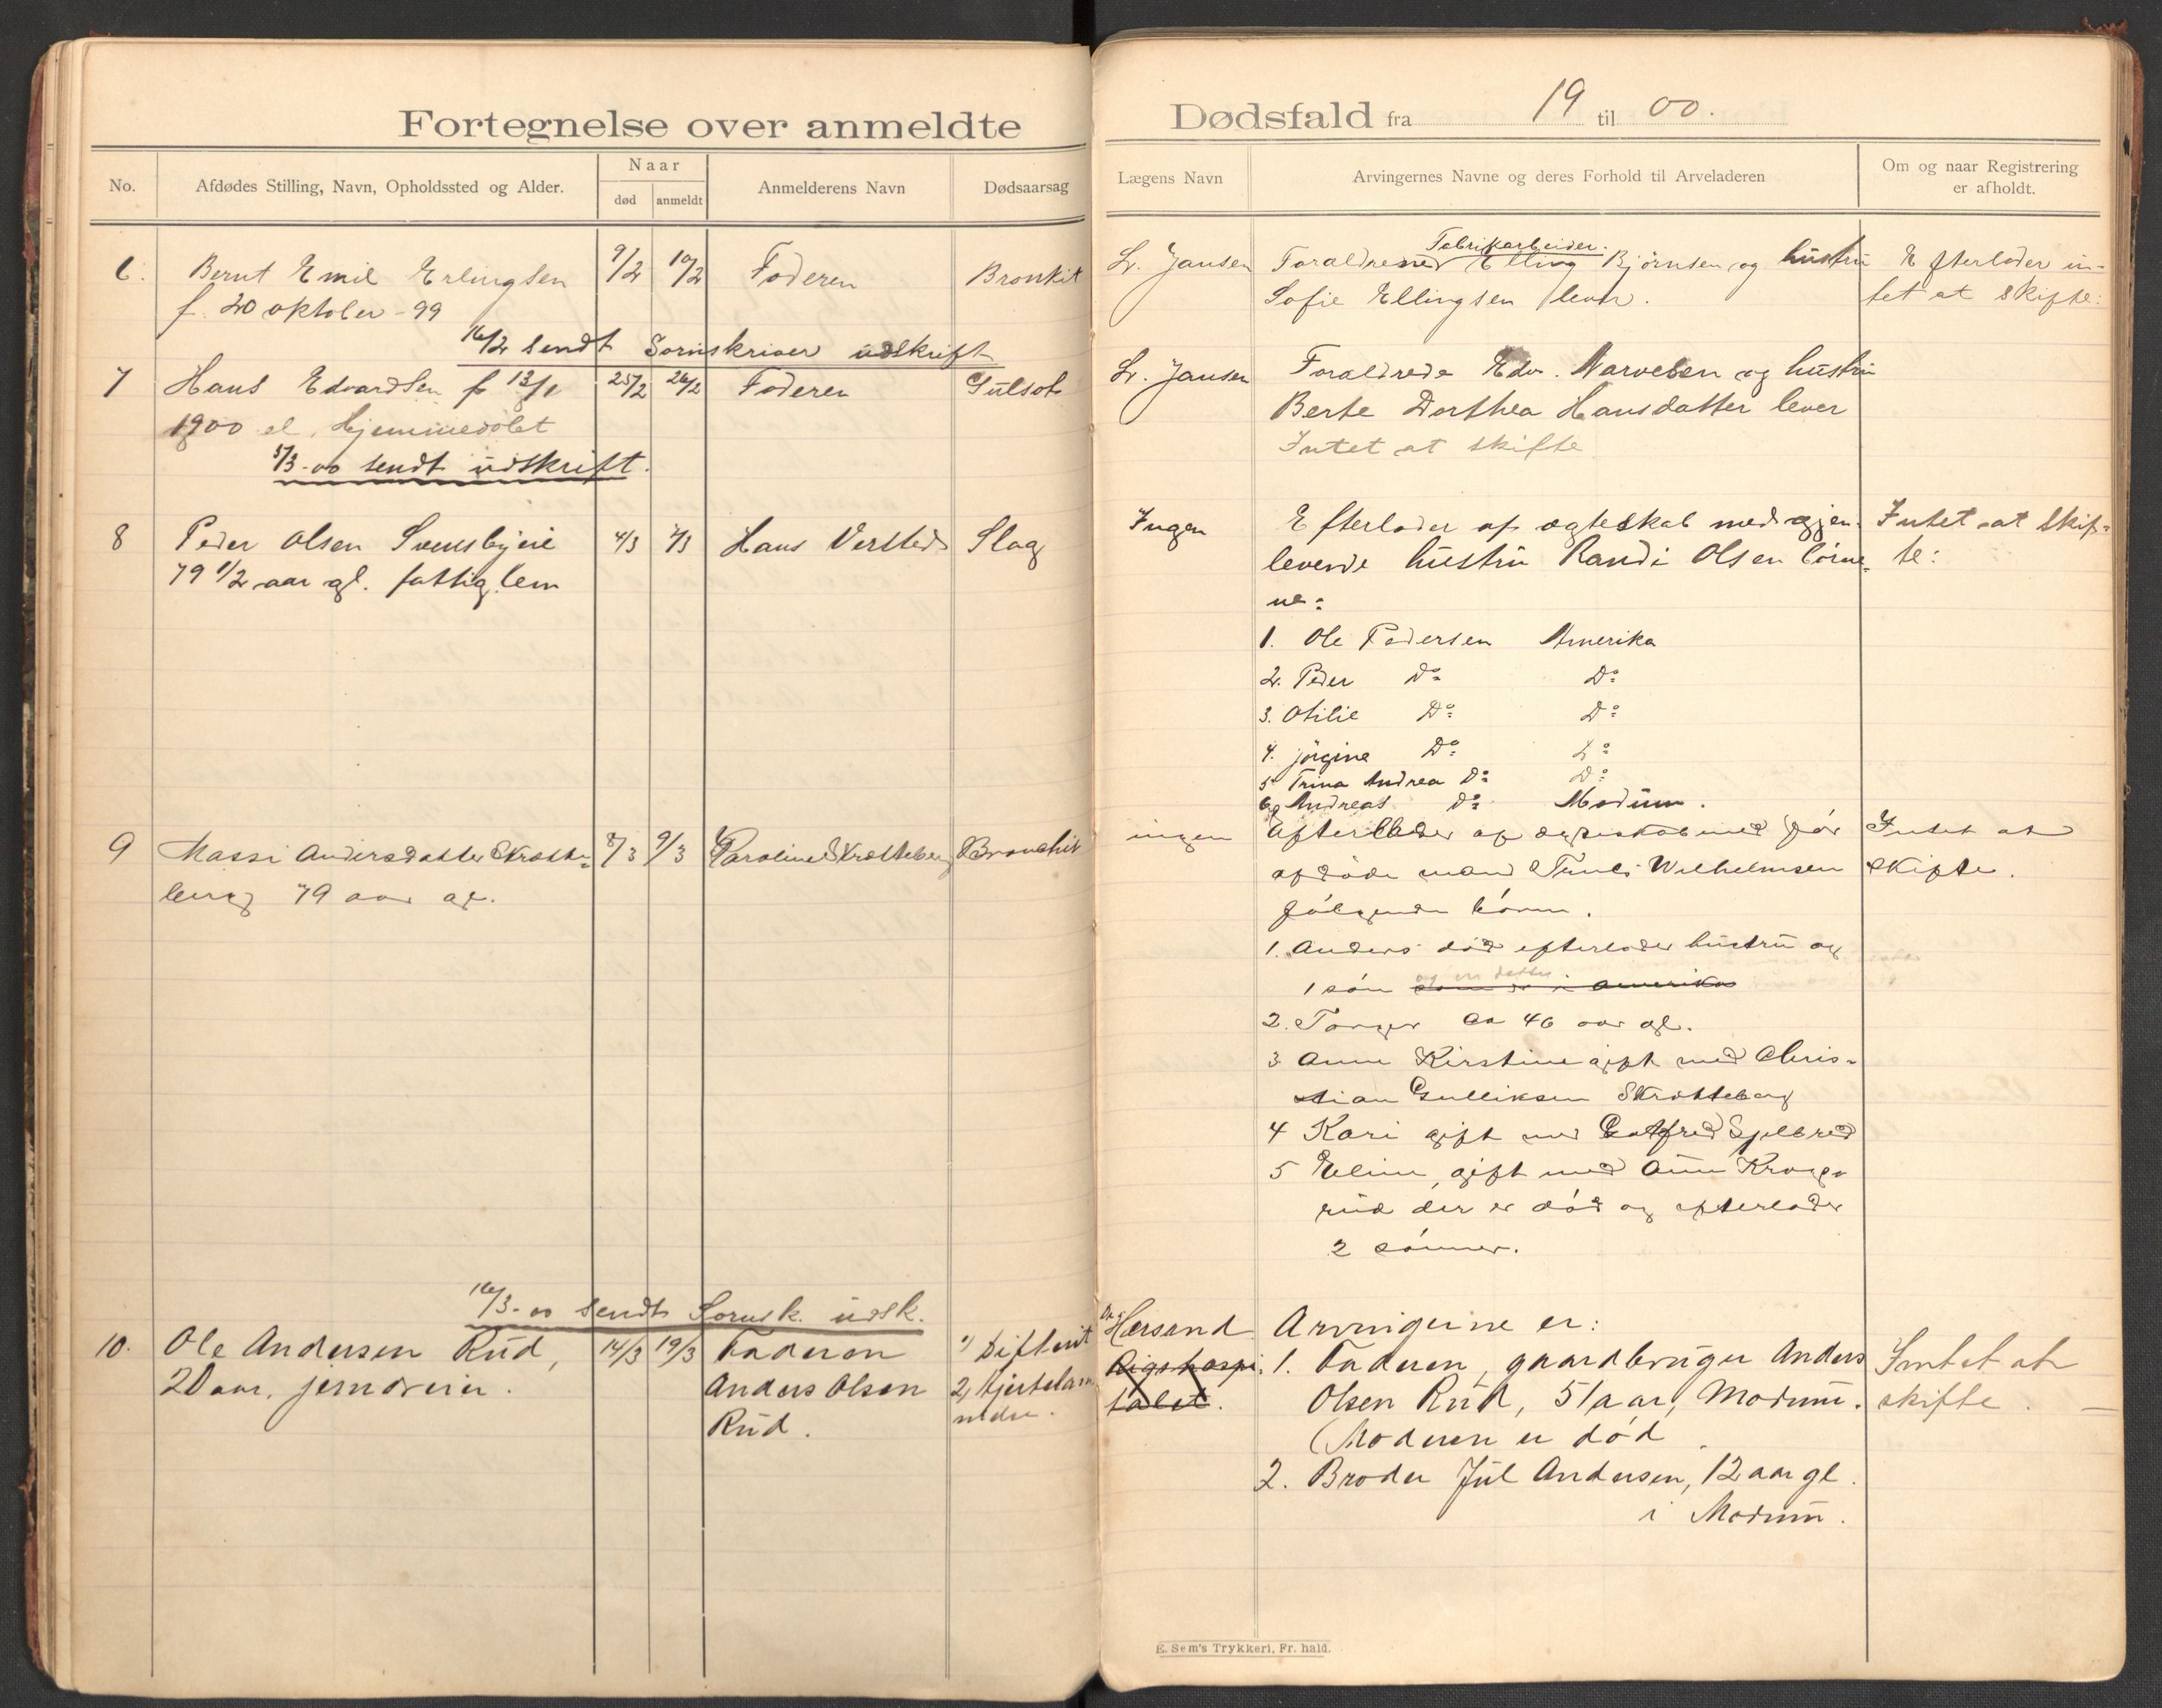 Fortegnelse over anmeldte
No.
Afdødes Stilling, Navn, Opholdssted og Alder.
Naar
død
anmeldt
Anmelderens Navn
Dødsaarsag
6.
Bernt Emil Erlingsen
f. 20 oktober - 99
9/2
10/2
Faderen
Bronkit
16/2 sendt Sornskriver udskrift
7
Hans Edvardsen f 13/1
1900 el. Hjemmedøbt
25/2
26/2
Faderen
Gulsot
5/3-00 sendt udskrift.
8
Peder Olsen Svensbyeie
79 1/2 aar gl. fattiglem
4/3
7/3
Hans Versted
Slag
9
Massi Andersdatter Skrotte-
berg 79 aar gl.
8/3
9/3
Karoline Skrotteberg
Bronchit
16/3-00 sendt Sornsk. udsk.
10.
Ole Andersen Rud,
20 aar, jerndreier.
14/3
19/3
Faderen
Anders Olsen
Rud.
1) Difterit
2) Hjertelam
melse.
Dødsfald fra 19 til 00.
Lægens Navn
Arvingernes Navne og deres Forhold til Arveladeren
Om og naar Registrering
er afholdt.
Fabrikarbeider.
L. Jansen
Foraldrene Elling Bjørnsen og hustru
Sofie Ellingsen lever.
Efterlader in-
tet at skifte:
L. Jansen
Foraldrede Edv. Narvesen og hustru
Berte Dorthea Hansdatter lever
Intet at skifte
Ingen
Efterlader af ægteskab med gjen-
levende hustru Randi Olsen børne-
ne:
Intet at skif-
te:
1. Ole Pedersen Amerika
2. Peder Do Do
3. Otilie Do Do
4. Jørgine Do Do
5 Trina Andrea Do Do
6 Andreas Do Modum.
ingen
Efterlader af ægteskab med før
afdøde mand Truls Wilhelmsen
følgende børn.
Intet at
skifte.
1. Anders død efterlader hustru og
og en datter
1 søn som er i amerika
2. Torger ca 46 aar gl.
3 Anne Kirstine gift med Chris-
tian Gulliksen Skrotteberg
4 Kari gift med Gotfred Sjelbred
5 Eline, gift med
rud der er død og efterlader
2 sønner.
Dr. Horsand
Rigshospi-
talet.
Arvingerne er:
1. Faderen, gaardbruger Anders
Olsen Rud, 51 aar, Modum.
(Moderen er død
2. Broder Jul Andersen, 12 aar gl.
i Modum.
Intet at
skifte. —
E. Sem's Trykkeri, Fr. hald.